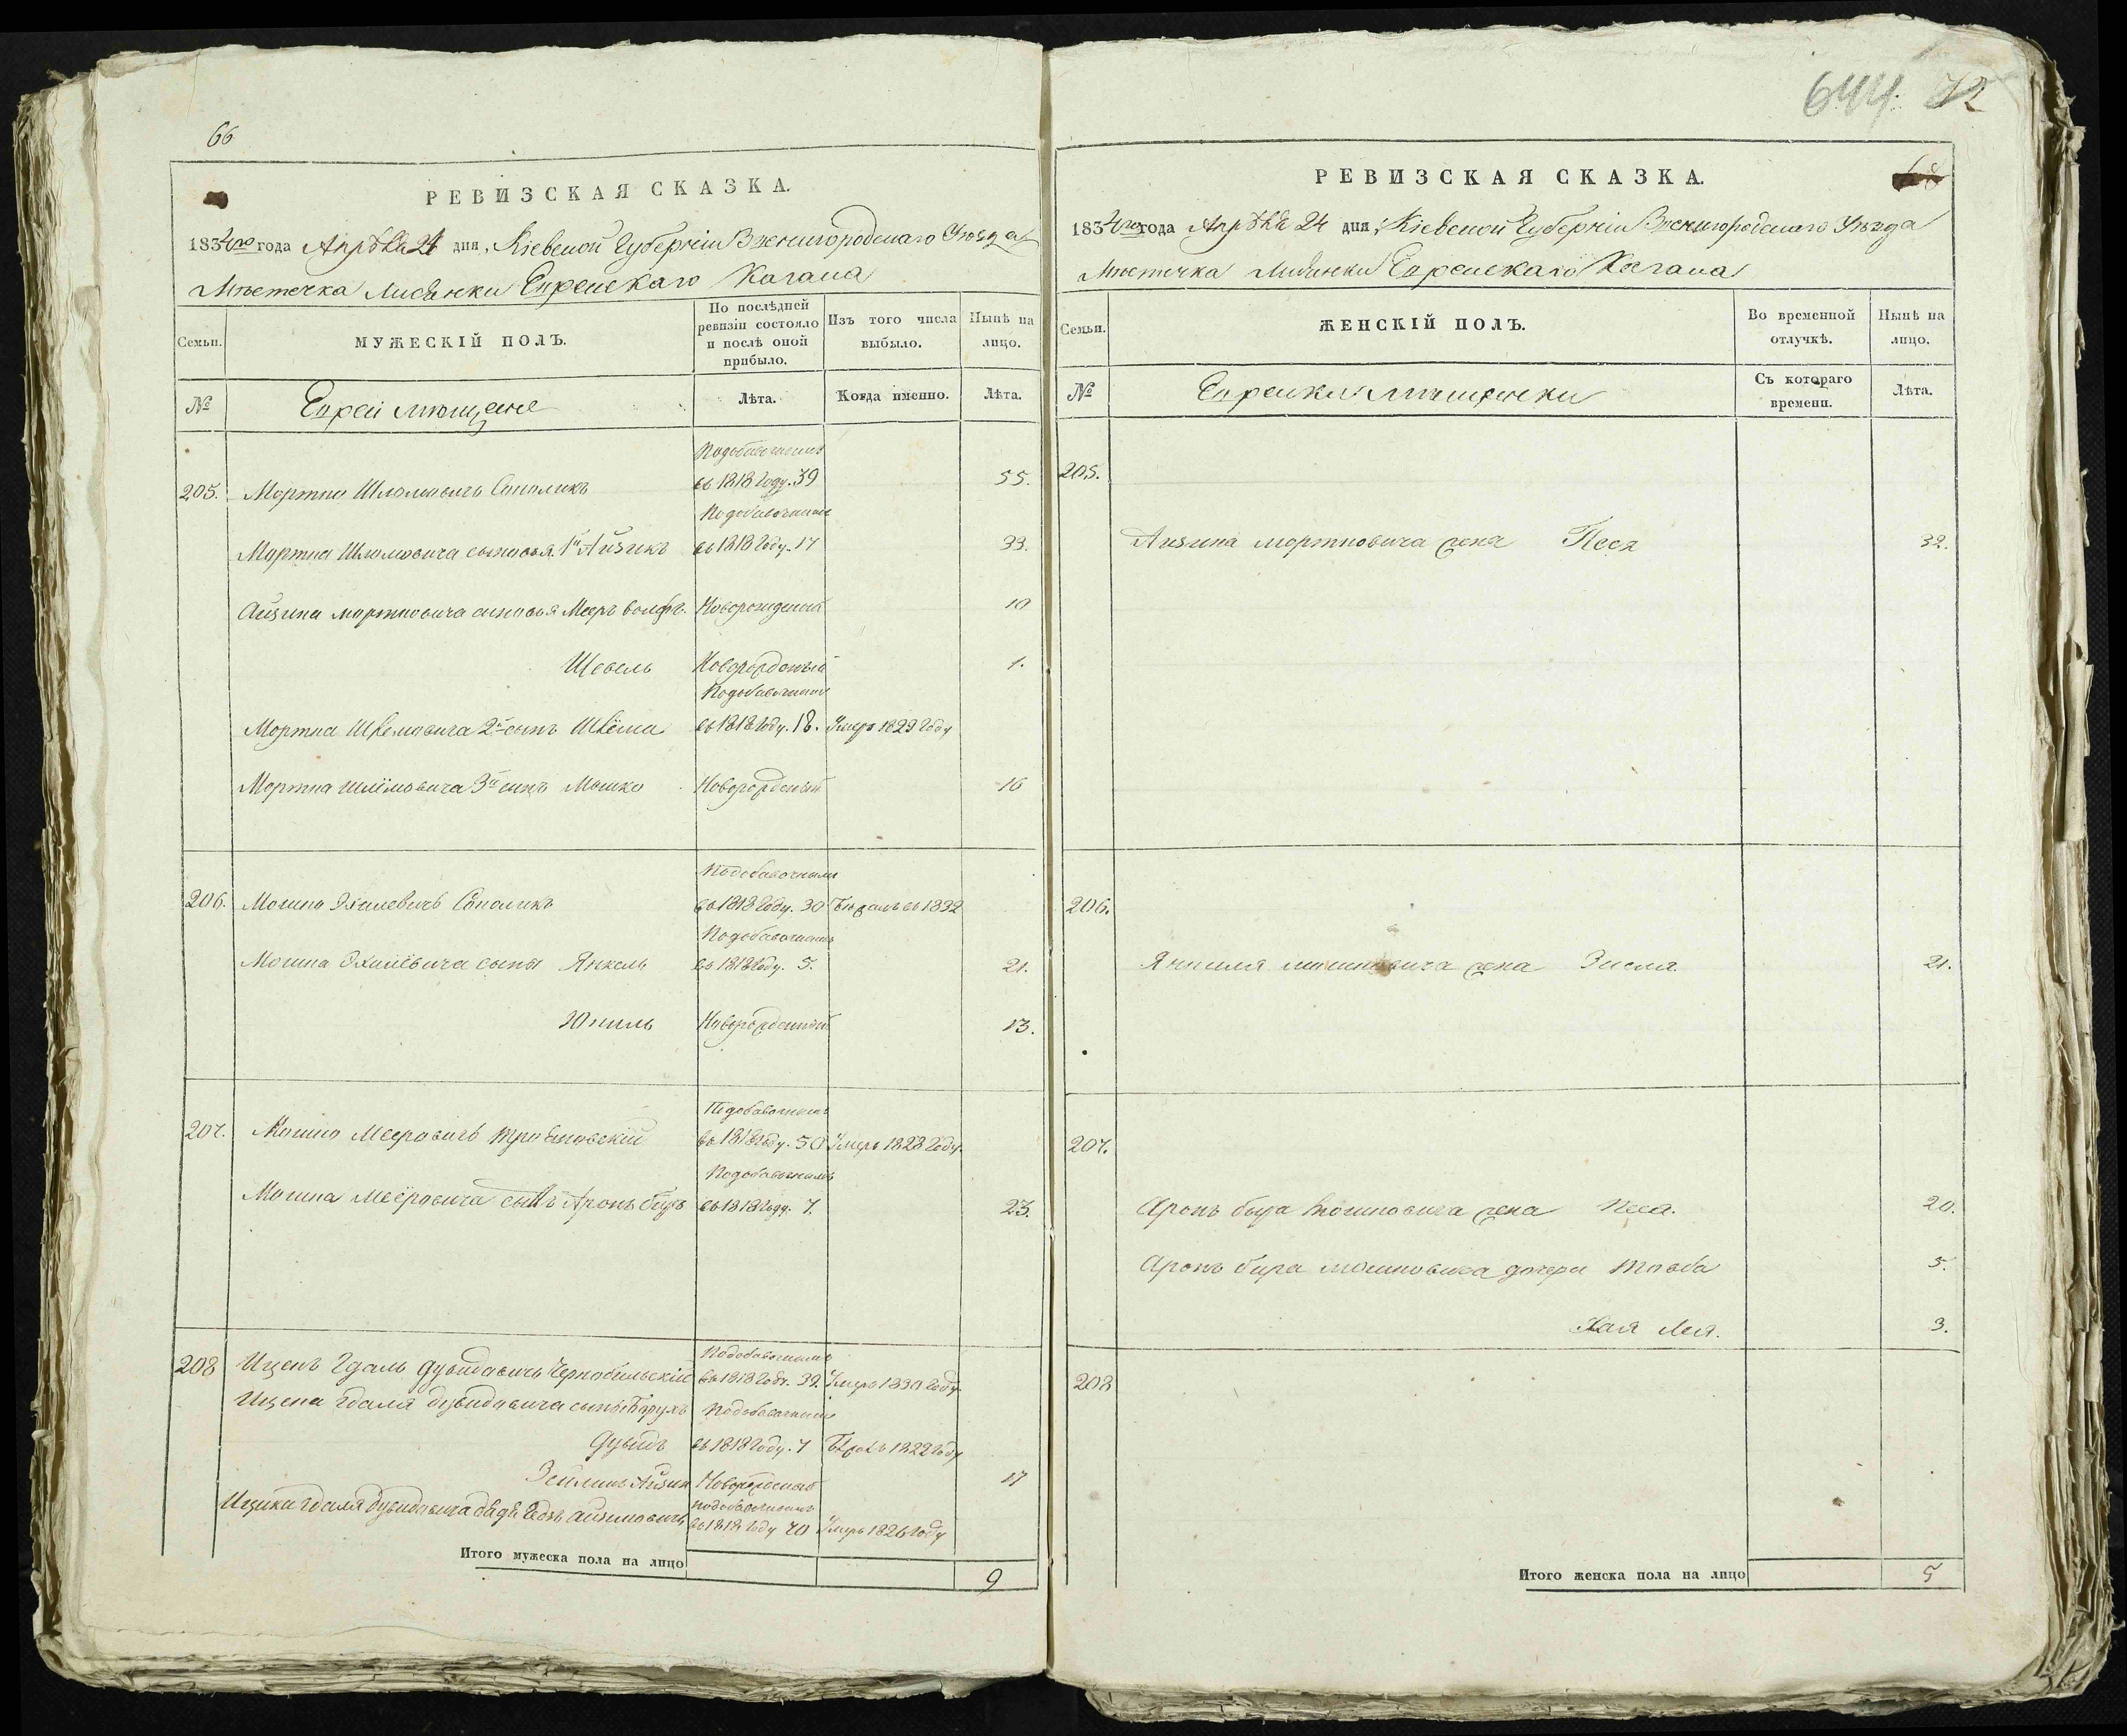 66
РЕВИЗСКАЯ СКАЗКА.
1834го года Апрѣля 24 дня, Кіевской Губерніи Звенигородскаго Уѣзда
Мѣстечка Лисянки Еврейскаго Кагала
Семьи.
МУЖЕСКІЙ ПОЛЪ.
По послѣдней ревизіи состояло и послѣ оной прибыло.
Изъ того числа выбыло.
Нынѣ на лицо.
№
Евреи мѣщане
Лѣта.
Когда именно.
Лѣта.
205. Мортка Шлюмовичъ Соколикъ
Подобавочнымъ
въ 1818 Году. 39
55.
Мортка Шлюмовича сыновья 1й Айзикъ
Подобавочнымъ
въ 1818 Году. 17
33.
Айзика мортковича сыновья Меер волфъ. Новорожденый 10
Шевель Новорожденый 1.
Мортка Шлемовича 2й сынъ Шлёма
Подобавочнымъ
въ 1818 Году. 18. Умеръ 1823 Году
Мортка шлёмовича 3й сынъ Мошко Новорожденый 16
206. Мошко Хилевичъ Соколикъ
Подобавочнымъ
въ 1818 Году. 30 Бѣжалъ въ 1832
Мошка Хилевича сыны Янкель
Подобавочнымъ
въ 1818 Году. 5.
21.
Юкиль Новорожденный 13.
207. Мошко Мееровичъ
Подобавочнымъ
въ 1818 Году. 50 Умеръ 1828 Году.
Мошка Меёровича сынъ Аронъ беръ
Подобавочнымъ
въ 1818 Году. 7.
23.
208 Ицекъ Гдаль Дувидовичъ Чернобильскій
Подобавочнымъ
въ 1818 Году. 39. Умеръ 1830 Году.
Ицека Гдаля дувидовича сыны Борухъ
Подобавочнымъ
Дувидъ въ 1818 Году. 7 1822 Году
Айзик Новорожденый 17
Ицика Гдаля Дувидовича дядя айзиковичъ
подобавочнымъ
въ 1818 Году 70 Умеръ 1826 Году
Итого мужеска пола на лицо
9
644. 72
68
РЕВИЗСКАЯ СКАЗКА.
1834го года Апрѣля 24 дня, Кіевской Губерніи Звенигородскаго Уѣзда
Мѣстечка Лисянки Еврейскаго Кагала
Семьи.
ЖЕНСКІЙ ПОЛЪ.
Во временной отлучкѣ.
Нынѣ на лицо.
№
Еврейки мѣщанки
Съ котораго времени.
Лѣта.
205.
Айзика мортковича жена Песя 32.
206.
Янкиля мошковича жена Зисля. 21.
207.
Аронъ бера мошковича жена Песя. 20.
Аронъ бера мошковича дочери Товба 5.
Хая Лея. 3.
208
Итого женска пола на лицо
5